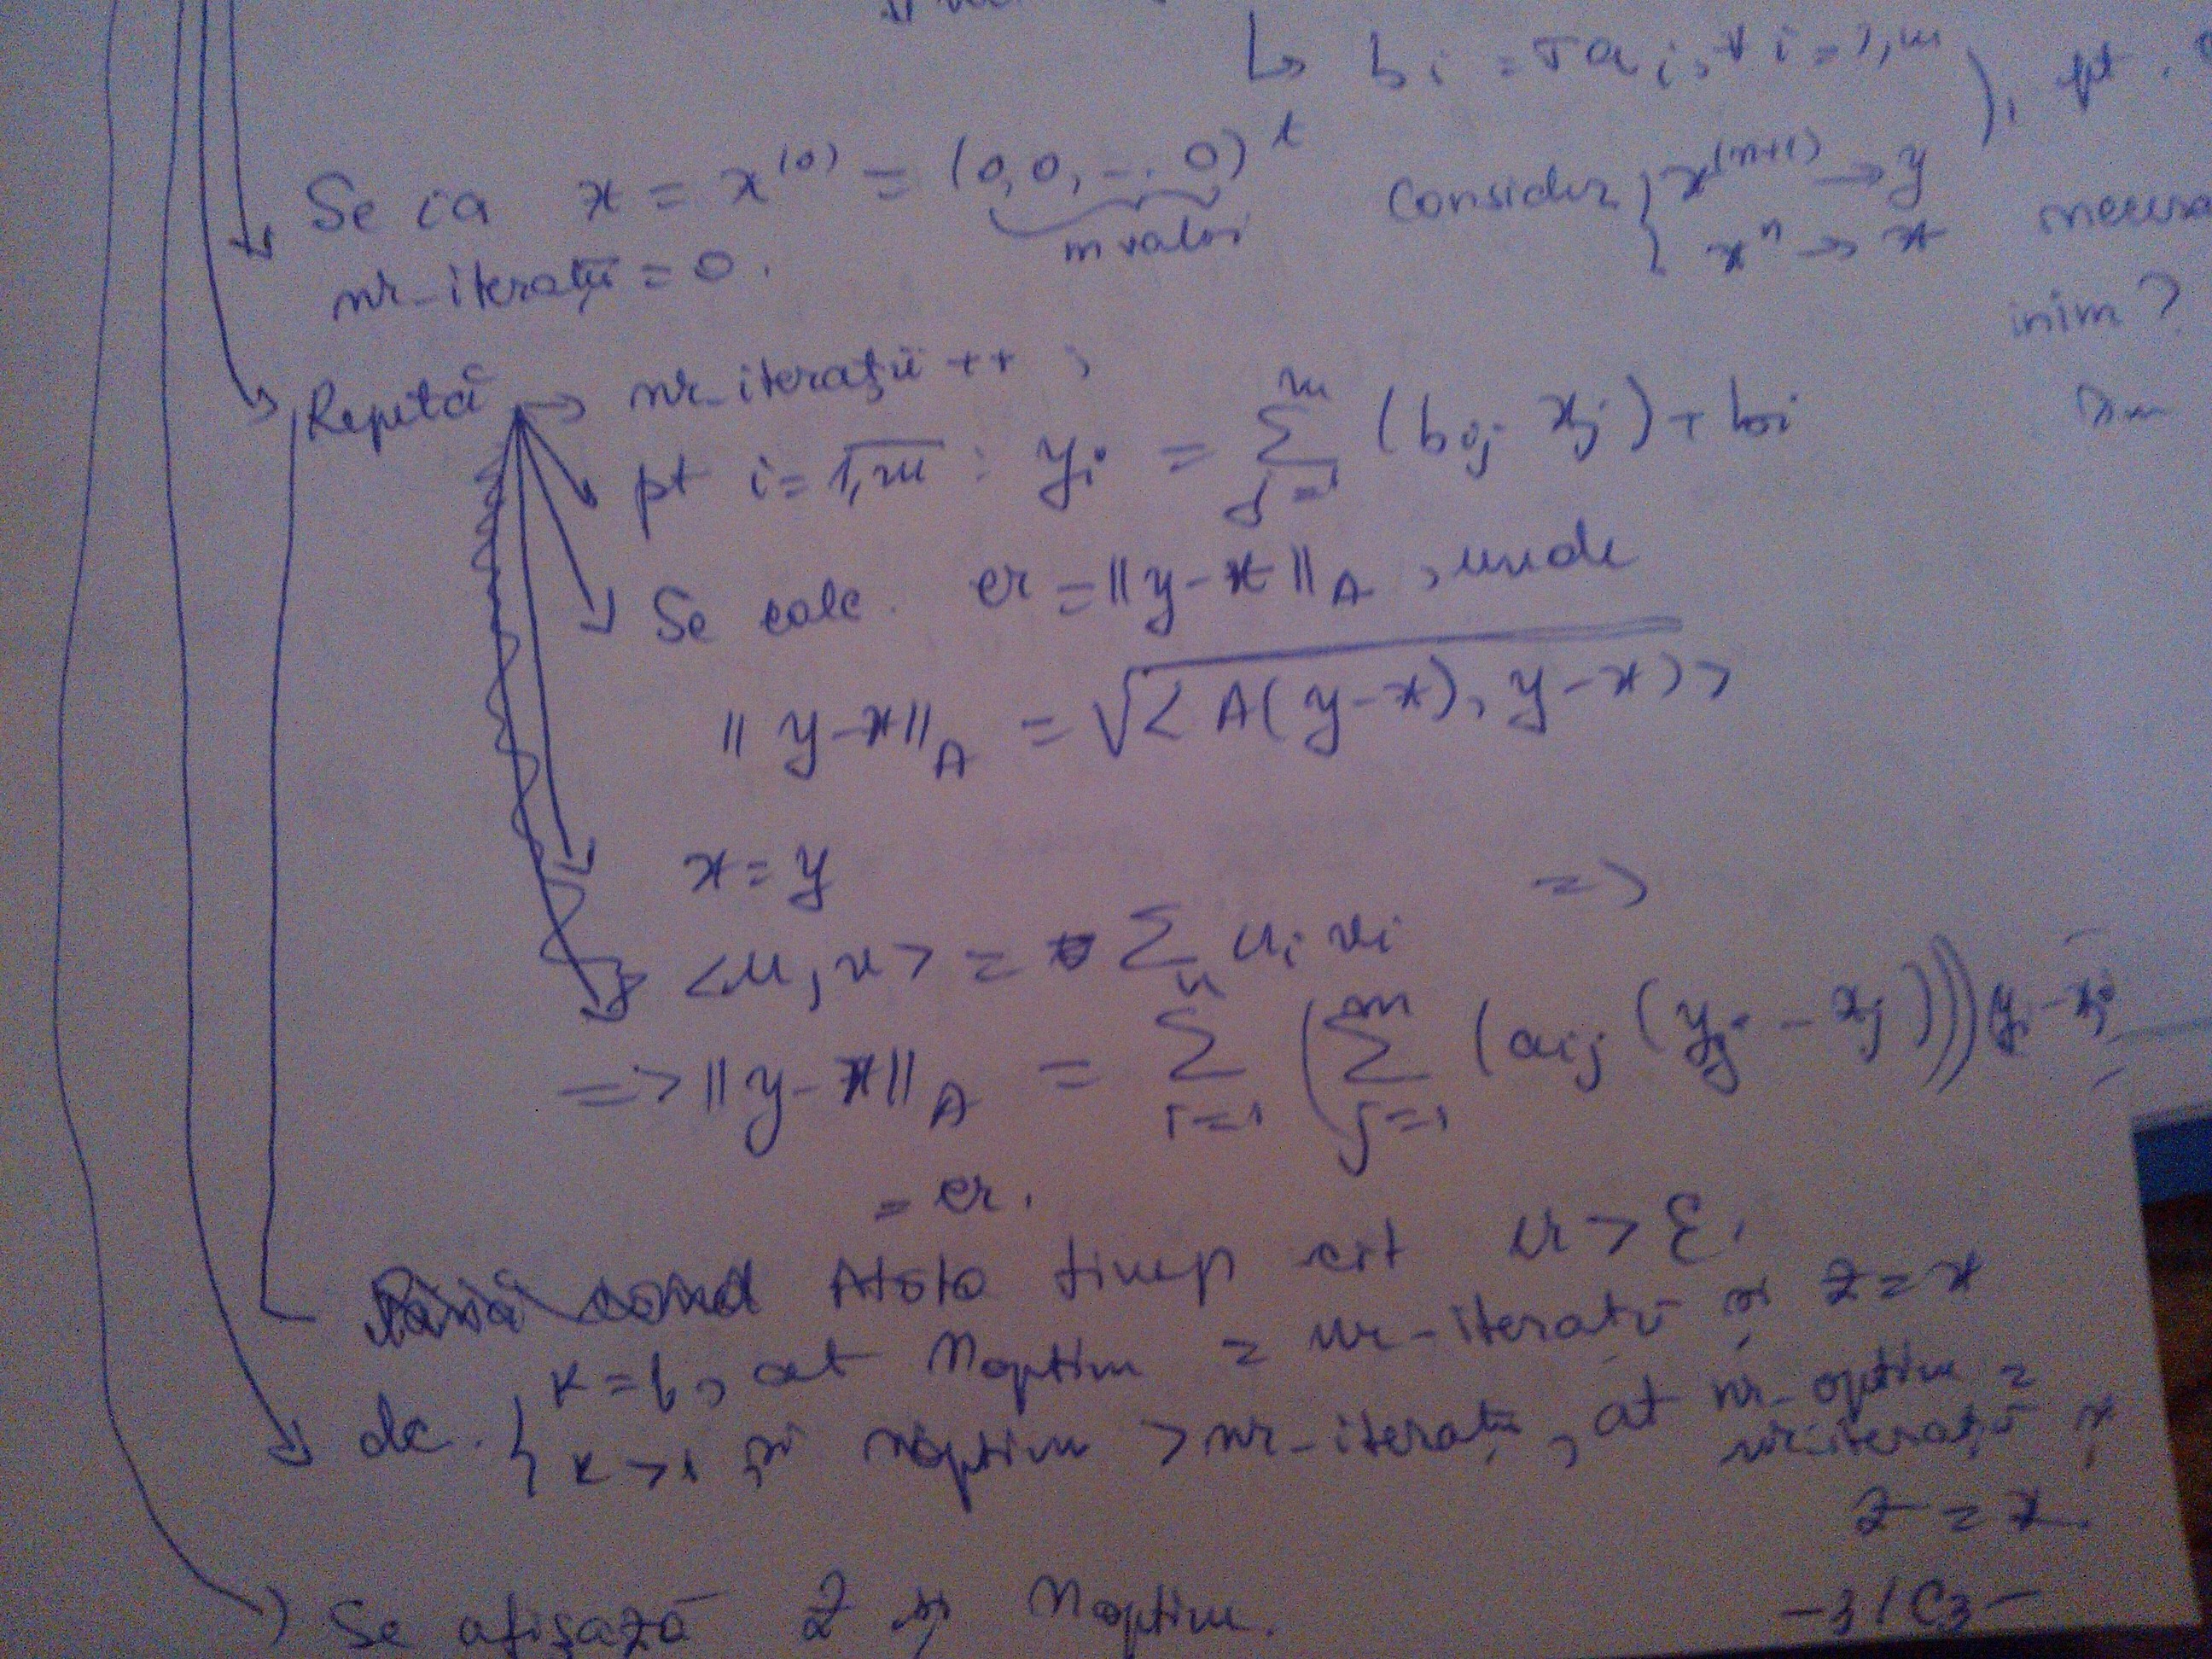 ↳ b i = τ a i, ∀ i = 1, m
), pt.
Se ia x = x^(0) = (0, 0, ... 0)^t
m valori
Consider { x^(n+1) → y
x^n → x
nr_iterații = 0.
inim?
Repetă → nr_iterații ++ ;
pt i = 1,m : y_i = Σ_{j=1}^{m} (b_ij x_j) + b_i
Se calc. er = ||y-x||_A , unde
||y-x||_A = √<A(y-x), y-x>
x = y
=>
<u, v> = Σ u_i v_i
=> ||y-x||_A = Σ_{i=1}^{n} (Σ_{j=1}^{m} (a_ij (y_j - x_j))) (y_i - x_i)
= er.
Până când Atâta timp cât er > ε.
dc. { k = 1, at noptim = nr-iterații și z = x
k > 1 și noptim > nr-iterații, at nr-optim =
nr-iterații și
z = x.
Se afișază z și noptim.
-3/C3-